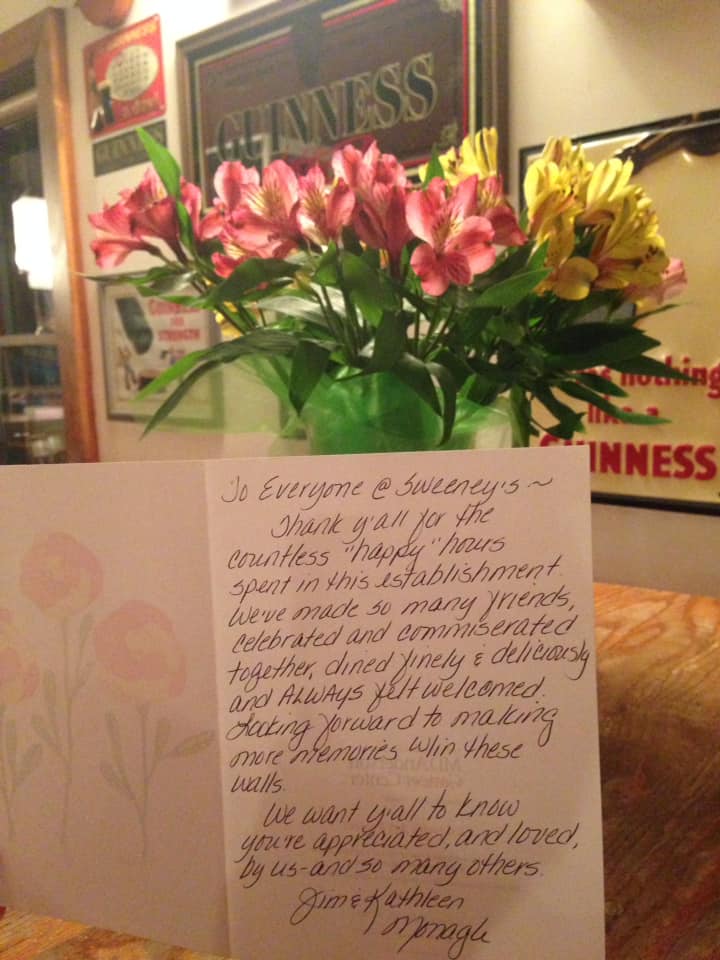 GUINNESS
GUINNESS
GUINNESS
FOR
STRENGTH
nothing
like a
GUINNESS
To Everyone @ Sweeney's ~
Thank y'all for the
countless "happy" hours
spent in this establishment.
We've made so many friends,
celebrated and commiserated
together, dined finely & deliciously
and ALWAYS felt welcomed.
Looking forward to making
more memories w/in these
walls.
We want y'all to know
you're appreciated, and loved,
by us - and so many others.
Jim & Kathleen
Monagle